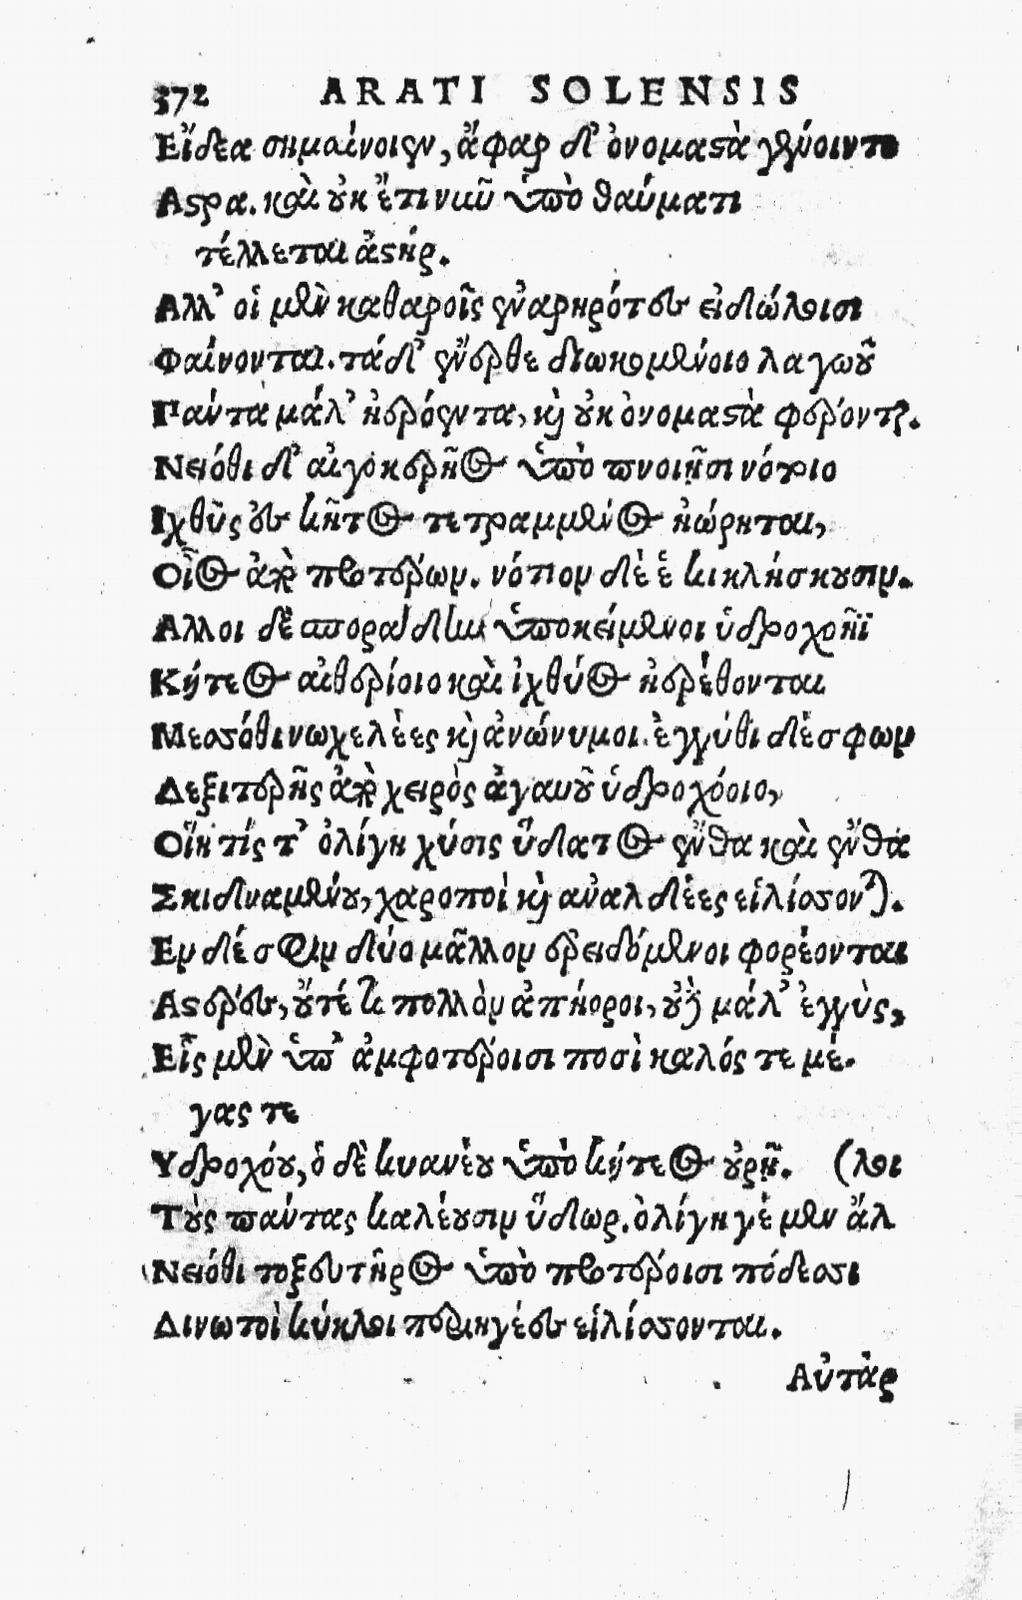 372 ARATI SOLENSIS
Εἴδεα σημαίνοιεν, ἄφαρ δ' ὀνομαστὰ γένοιντο
Αστρα. καὶ οὐκ ἔτι νῦν ὑπὸ θαύματι
τέλλεται ἀστήρ.
Αλλ' οἱ μὲν καθαροῖς ἐναρηρότες εἰδώλοισι
Φαίνονται. τὰ δ' ἔνερθε διωκομένοιο λαγωοῦ
Πάντα μάλ' ἠερόεντα, καὶ οὐκ ὀνομαστὰ φέρονται.
Νειόθι δ' αἰγοκερῆος ὑπὸ πνοιῇσι νότοιο
Ιχθῦς ἐς κῆτος τετραμμένος ἠώρηται,
Οἶος ἀπὸ προτέρων. νότιον δὲ ἑ κικλήσκουσιν.
Αλλοι δὲ σποράδην ὑποκείμενοι ὑδροχοῆϊ
Κήτεος αἰθερίοιο καὶ ἰχθύος ἠερέθονται
Μεσσόθι νωχελέες καὶ ἀνώνυμοι. ἐγγύθι δέ σφων
Δεξιτερῆς ἀπὸ χειρὸς ἀγαυοῦ ὑδροχόοιο,
Οἵη τίς τ' ὀλίγη χύσις ὕδατος ἔνθα καὶ ἔνθα
Σκιδναμένου, χαροποὶ καὶ ἀναλδέες εἱλίσσονται.
Εν δέ σφιν δύο μᾶλλον ἐειδόμενοι φορέονται
Αστέρες, οὔτέ τι πολλὸν ἀπήοροι, οὔτε μάλ' ἐγγὺς,
Εἷς μὲν ὑπ' ἀμφοτέροισι ποσὶ καλός τε μέ-
γας τε
Υδροχόου, ὁ δὲ κυανέου ὑπὸ κήτεος οὐρῇ. (λοι
Τοὺς πάντας καλέουσιν ὕδωρ. ὀλίγη γέ μεν ἄλ
Νειόθι τοξευτῆρος ὑπὸ προτέροισι πόδεσσι
Δινωτοὶ κύκλοι περιηγέες εἱλίσσονται.
Αὐτὰρ